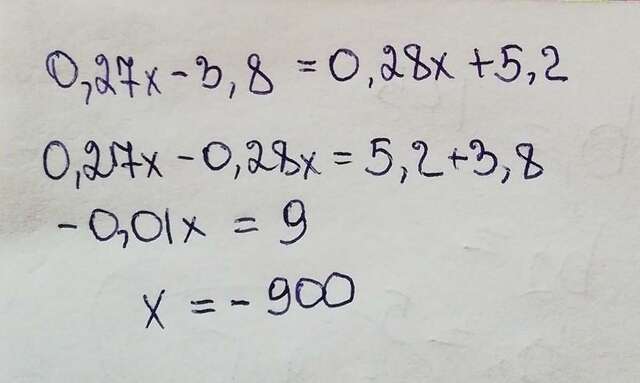 0,27x - 3,8 = 0,28x + 5,2
0,27x - 0,28x = 5,2 + 3,8
- 0,01x = 9
x = - 900